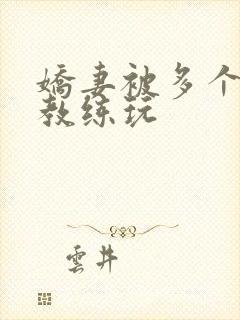 嬌妻被多个
教练玩
雲井